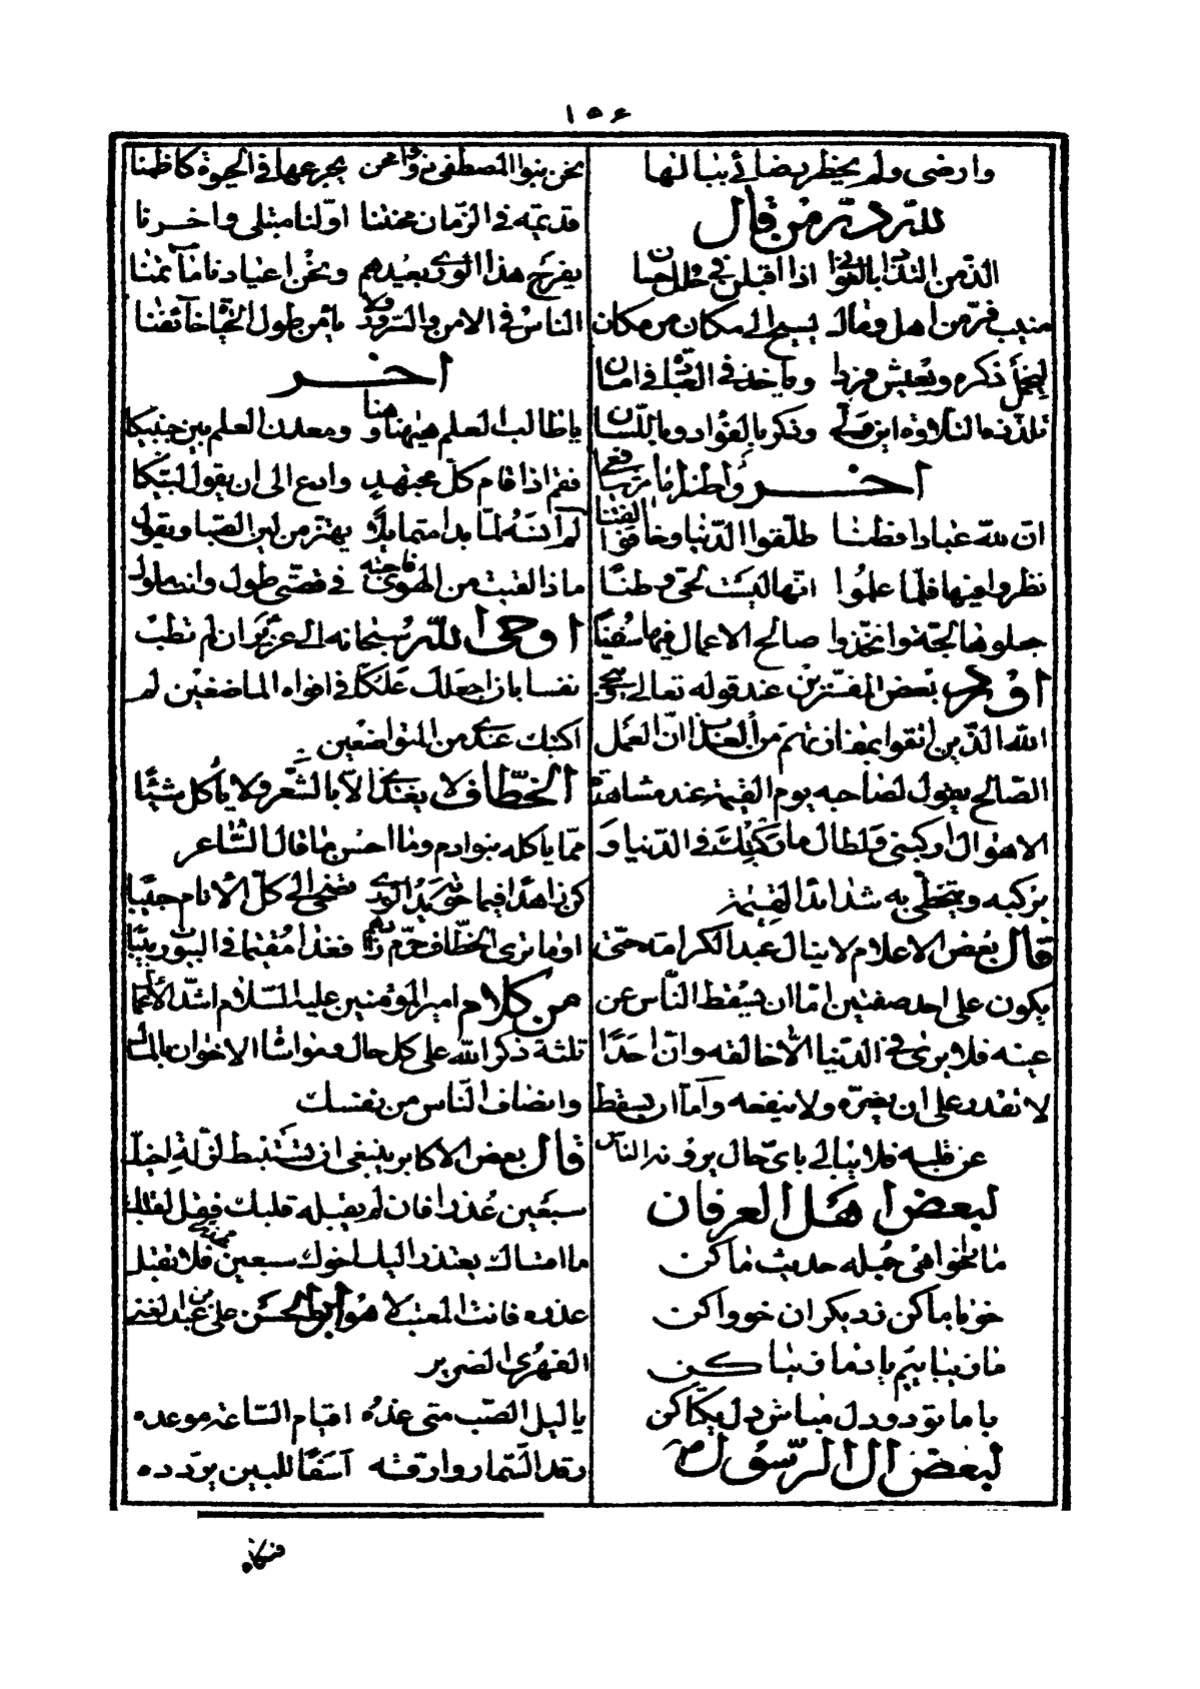 ١٥٦
وارضى ولم يخطر رضائے ببالها
لله در من قال
الذ من التلذذ بالغوانی اذا اقبلن فی حلل حسان
منيب فر من اهل ومال يسيح الى مكان من مكان
ليخمل ذكره ويعيش فردا وياخذ فی العبادة فی امان
تلذذه التلاوة اين ولى وذكر بالفؤاد وباللسان
اخر
ان لله عبادا فطنا طلقوا الدنيا وخافوا الفتنا
نظروا فيها فلما علموا انها ليست لحی وطنا
جعلوها لجة واتخذوا صالح الاعمال فيها سفنا
بعض المفسرين عند قوله تعالى وينجی
الله الذين اتقوا بمفازتهم من العذاب ان العمل
الصالح يقول لصاحبه يوم القيمة عند مشاهدة
الاهوال اركبنی فلطال ما ركبتك فی الدنيا و
يركبه ويتخطى به شدائد القيمة
قال بعض الاعلام لا ينال عبد الكرامة حتى
يكون على احد صفتين اما ان يسقط الناس عن
عينه فلا يرى فی الدنيا الا خالقه وان احدا
لا يقدر على ان يضره ولا ينفعه واما ان يسقط
عن قلبه فلا يبالى بای حال يرونه الناس
لبعض اهل العرفان
ما نخواهی جمله حديث ما كن
خو با ما كن زديكران خو واكن
ما زيبائيم ياد ما زيبا كن
با ما تو دو دل مباش دل يكتا كن
لبعض ال الرسول ص
نحن بنو المصطفى ذوو محن يجرعها فی الحيوة كاظمنا
قديمة فی الزمان محنتنا اولنا مبتلى واخرنا
يفرح هذا الورى بعيدهم ونحن اعيادنا مآتمنا
الناس فی الامن والسرور ولا يأمن طول الحياة خائفنا
اخر
يا طالب العلم هيهنا وهنا ومعدن العلم بين جنبيكا
فقم اذا قام كل مجتهد وادع الى ان يقول لبيكا
لم انسه لما بدا متمايلا يهتز من لين الصبا ويقول
ماذا لقيت من الهوى فاجبته فی قصتی طول وانت ملول
اوحى الله سبحانه الى عزير ان لم تطب
نفسا بان اجعلك علكا فی افواه الماضغين لم
اكتبك عندی من المتواضعين
الخطاف لا يغتذی الا بالشعر ولا يأكل شيئا
مما ياكله بنوادم وما احسن ما قال الشاعر
كن زاهدا فيما حوته يد الورى تضحى الى كل الانام حبيبا
اوما ترى الخطاف حرم زادهم فغدا مقيما فی البيوت ربيبا
من كلام امير المؤمنين عليه السلام اشد الاعمال
ثلثة ذكر الله على كل حال ومواساة الاخوان بالمال
وانصاف الناس من نفسك
قال بعض الاكابر ينبغی ان تستنبط لزلة اخيك
سبعين عذرا فان لم يقبله قلبك فقل لقلبك
ما اقساك يعتذر اليك اخوك سبعين عذرا فلا تقبل
عذره فانت المعتب لا هو ابو الحسن على بن عبد الغنی
الفهری الضرير
يا ليل الصب متى غده اقيام الساعة موعده
رقد السمار وارقه اسفا للبين يردده